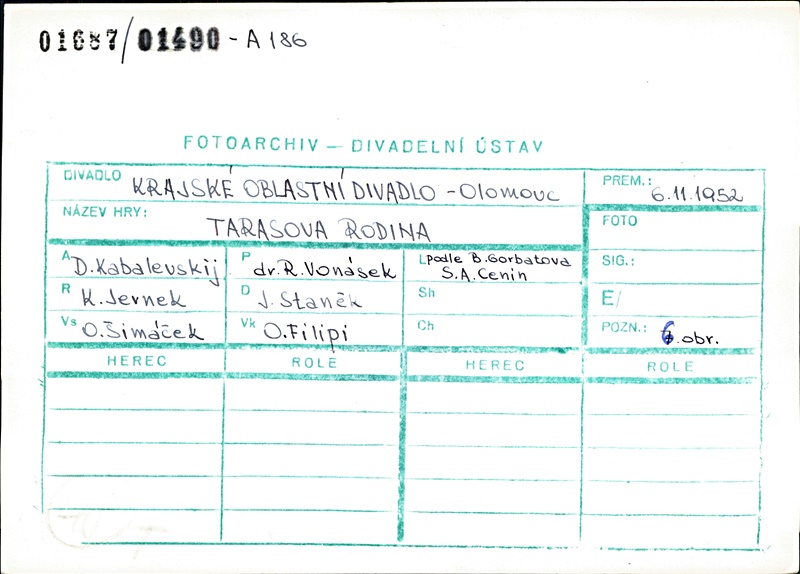 01687/01490 - A 186
FOTOARCHIV — DIVADELNÍ ÚSTAV
DIVADLO KRAJSKÉ OBLASTNÍ DIVADLO - Olomouc
PREM.: 6.11.1952
NÁZEV HRY: TARASOVA RODINA
FOTO
A D. Kabalevskij
P dr. R. Vonásek
L podle B. Gorbatova
S.A. Cenin
SIG.:
R K. Jernek
D J. Staněk
Sh
E/
Vs O. Šimáček
Vk O. Filipi
Ch
POZN.: 6. obr.
HEREC ROLE HEREC ROLE